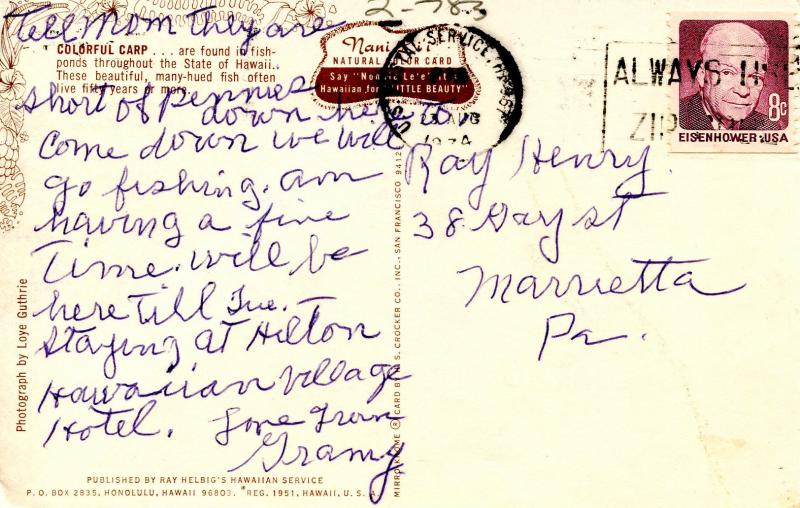 2-783
Tell Mom They are
COLORFUL CARP . . . are found in fish-
ponds throughout the State of Hawaii..
These beautiful, many-hued fish often
live fifty years or more.
short of Pennies
down here to
come down we will
go fishing. am
having a fine
Time. will be
here Till Tue.
Staying at Hilton
Hawaiian Village
Hotel. Love From
Gramy
Nani
NATURAL COLOR CARD
Say "No
Hawaiian for "LITTLE BEAUTY"
AUG
1974
ALWAYS USE
ZIP
8c
EISENHOWER·USA
Ray Henry
38 Gay st
Marrietta
Pa.
Photograph by Loye Guthrie
MIRRO-KROME ® CARD BY H. S. CROCKER CO., INC., SAN FRANCISCO 9412
PUBLISHED BY RAY HELBIG'S HAWAIIAN SERVICE
P.O. BOX 2835, HONOLULU, HAWAII 96803. *REG. 1951, HAWAII, U. S. A.